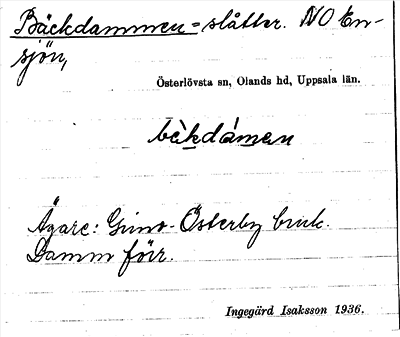 Bäckdammen=slåtter. NO En-
sjön,
Österlövsta sn, Olands hd, Uppsala län.
bäkdámen
Ägare: Gimo-Österby bruk.
Damm förr.
Ingegärd Isaksson 1936.